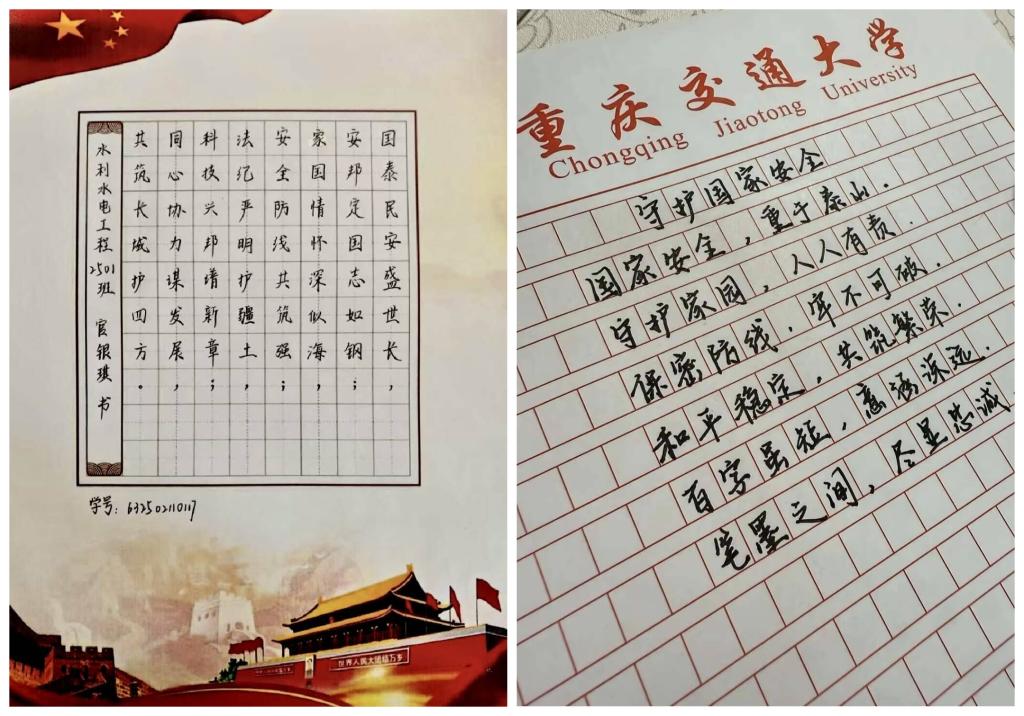 国泰民安盛世长，
安邦定国志如钢；
家国情怀深似海，
安全防线共筑强；
法纪严明护疆土，
科技兴邦谱新章；
同心协力谋发展，
共筑长城护四方。
水利水电工程2501班 官银琪 书
学号：632502110117
世界人民大团结万岁
重庆交通大学
Chongqing Jiaotong University
守护国家安全
国家安全，重于泰山.
守护家园，人人有责.
保密防线.牢不可破.
和平稳定，共筑繁荣.
百字虽短，意涵深远.
笔墨之间，尽显忠诚